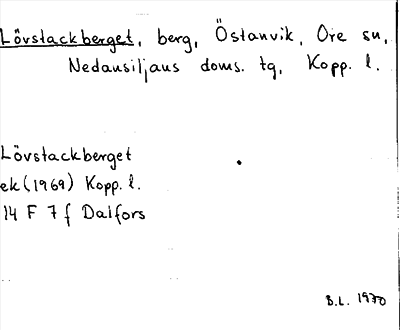 Lövstackberget, berg, Östanvik, Ore sn,
Nedansiljans doms. tg, Kopp. l.
Lövstackberget
ek (1969) Kopp. l.
14 F 7 f Dalfors
B.L. 1970